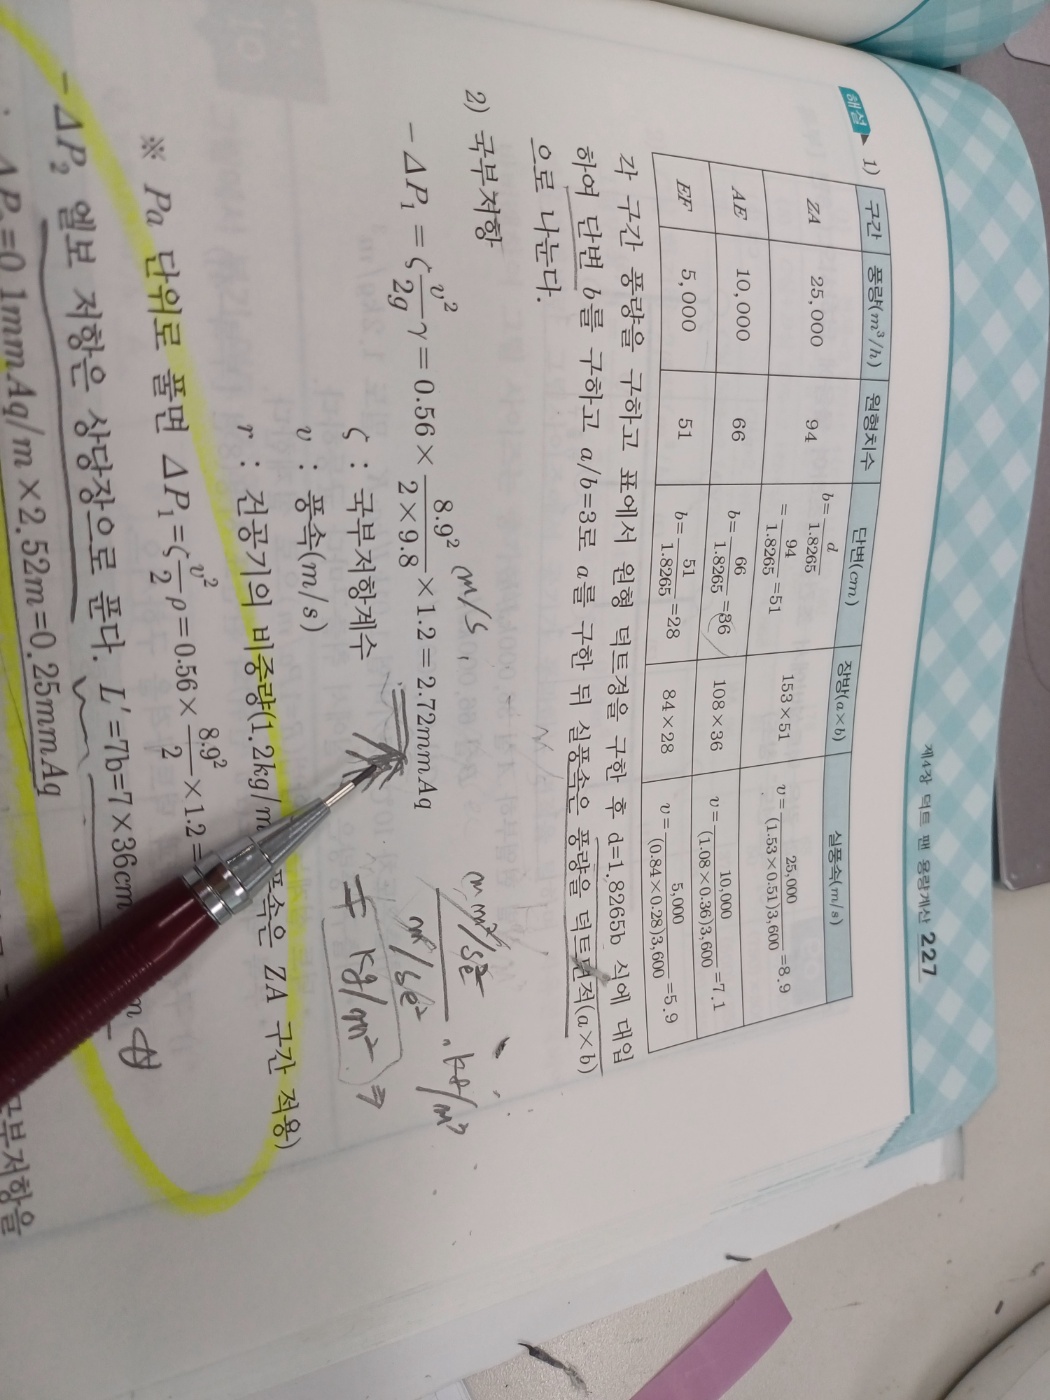 제4장 덕트 팬 용량계산 227
해설 1)
구간 풍량(m³/h) 원형치수 단변(cm) 장방(a×b) 실풍속(m/s)
ZA 25,000 94 b=d/1.8265 =94/1.8265=51 153×51 v=25,000/(1.53×0.51)3,600=8.9
AE 10,000 66 b=66/1.8265=36 108×36 v=10,000/(1.08×0.36)3,600=7.1
EF 5,000 51 b=51/1.8265=28 84×28 v=5,000/(0.84×0.28)3,600=5.9
각 구간 풍량을 구하고 표에서 원형 덕트경을 구한 후 d=1.8265b 식에 대입
하여 단변 b를 구하고 a/b=3로 a를 구한 뒤 실풍속은 풍량을 덕트면적(a×b)
으로 나눈다.
2) 국부저항
(m/s)
−ΔP₁=ζv²/2gγ=0.56×8.9²/2×9.8×1.2=2.72mmAq
m²/sec² / m/sec² · kg/m³
ζ : 국부저항계수
v : 풍속(m/s)
= kg/m² ⇒
r : 건공기의 비중량(1.2kg/m 풍속은 ZA 구간 적용)
※ Pa 단위로 풀면 ΔP₁=ζv²/2ρ=0.56×8.9²/2×1.2=
−ΔP₂ 엘보 저항은 상당장으로 푼다. L′=7b=7×36cm
ΔP₂=0.1mmAq/m×2.52m=0.25mmAq
국부저항을